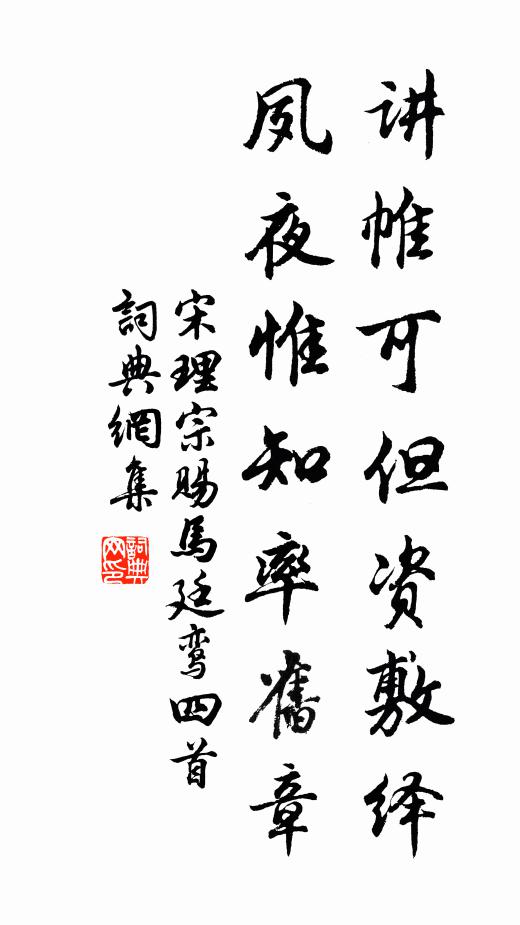 讲帷可但资敷绎
夙夜惟知率舊章
宋理宗賜馬廷鸾四首
詞典網集
詞典网印